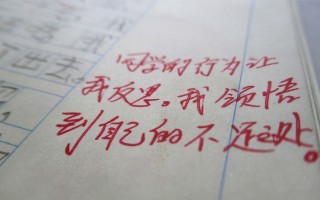 同学的行为让
我反思。我领悟
到自己的不足之处。
出去。